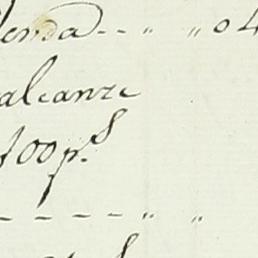 lenda -- " " 04
alcanze
100 p.s
---- " "